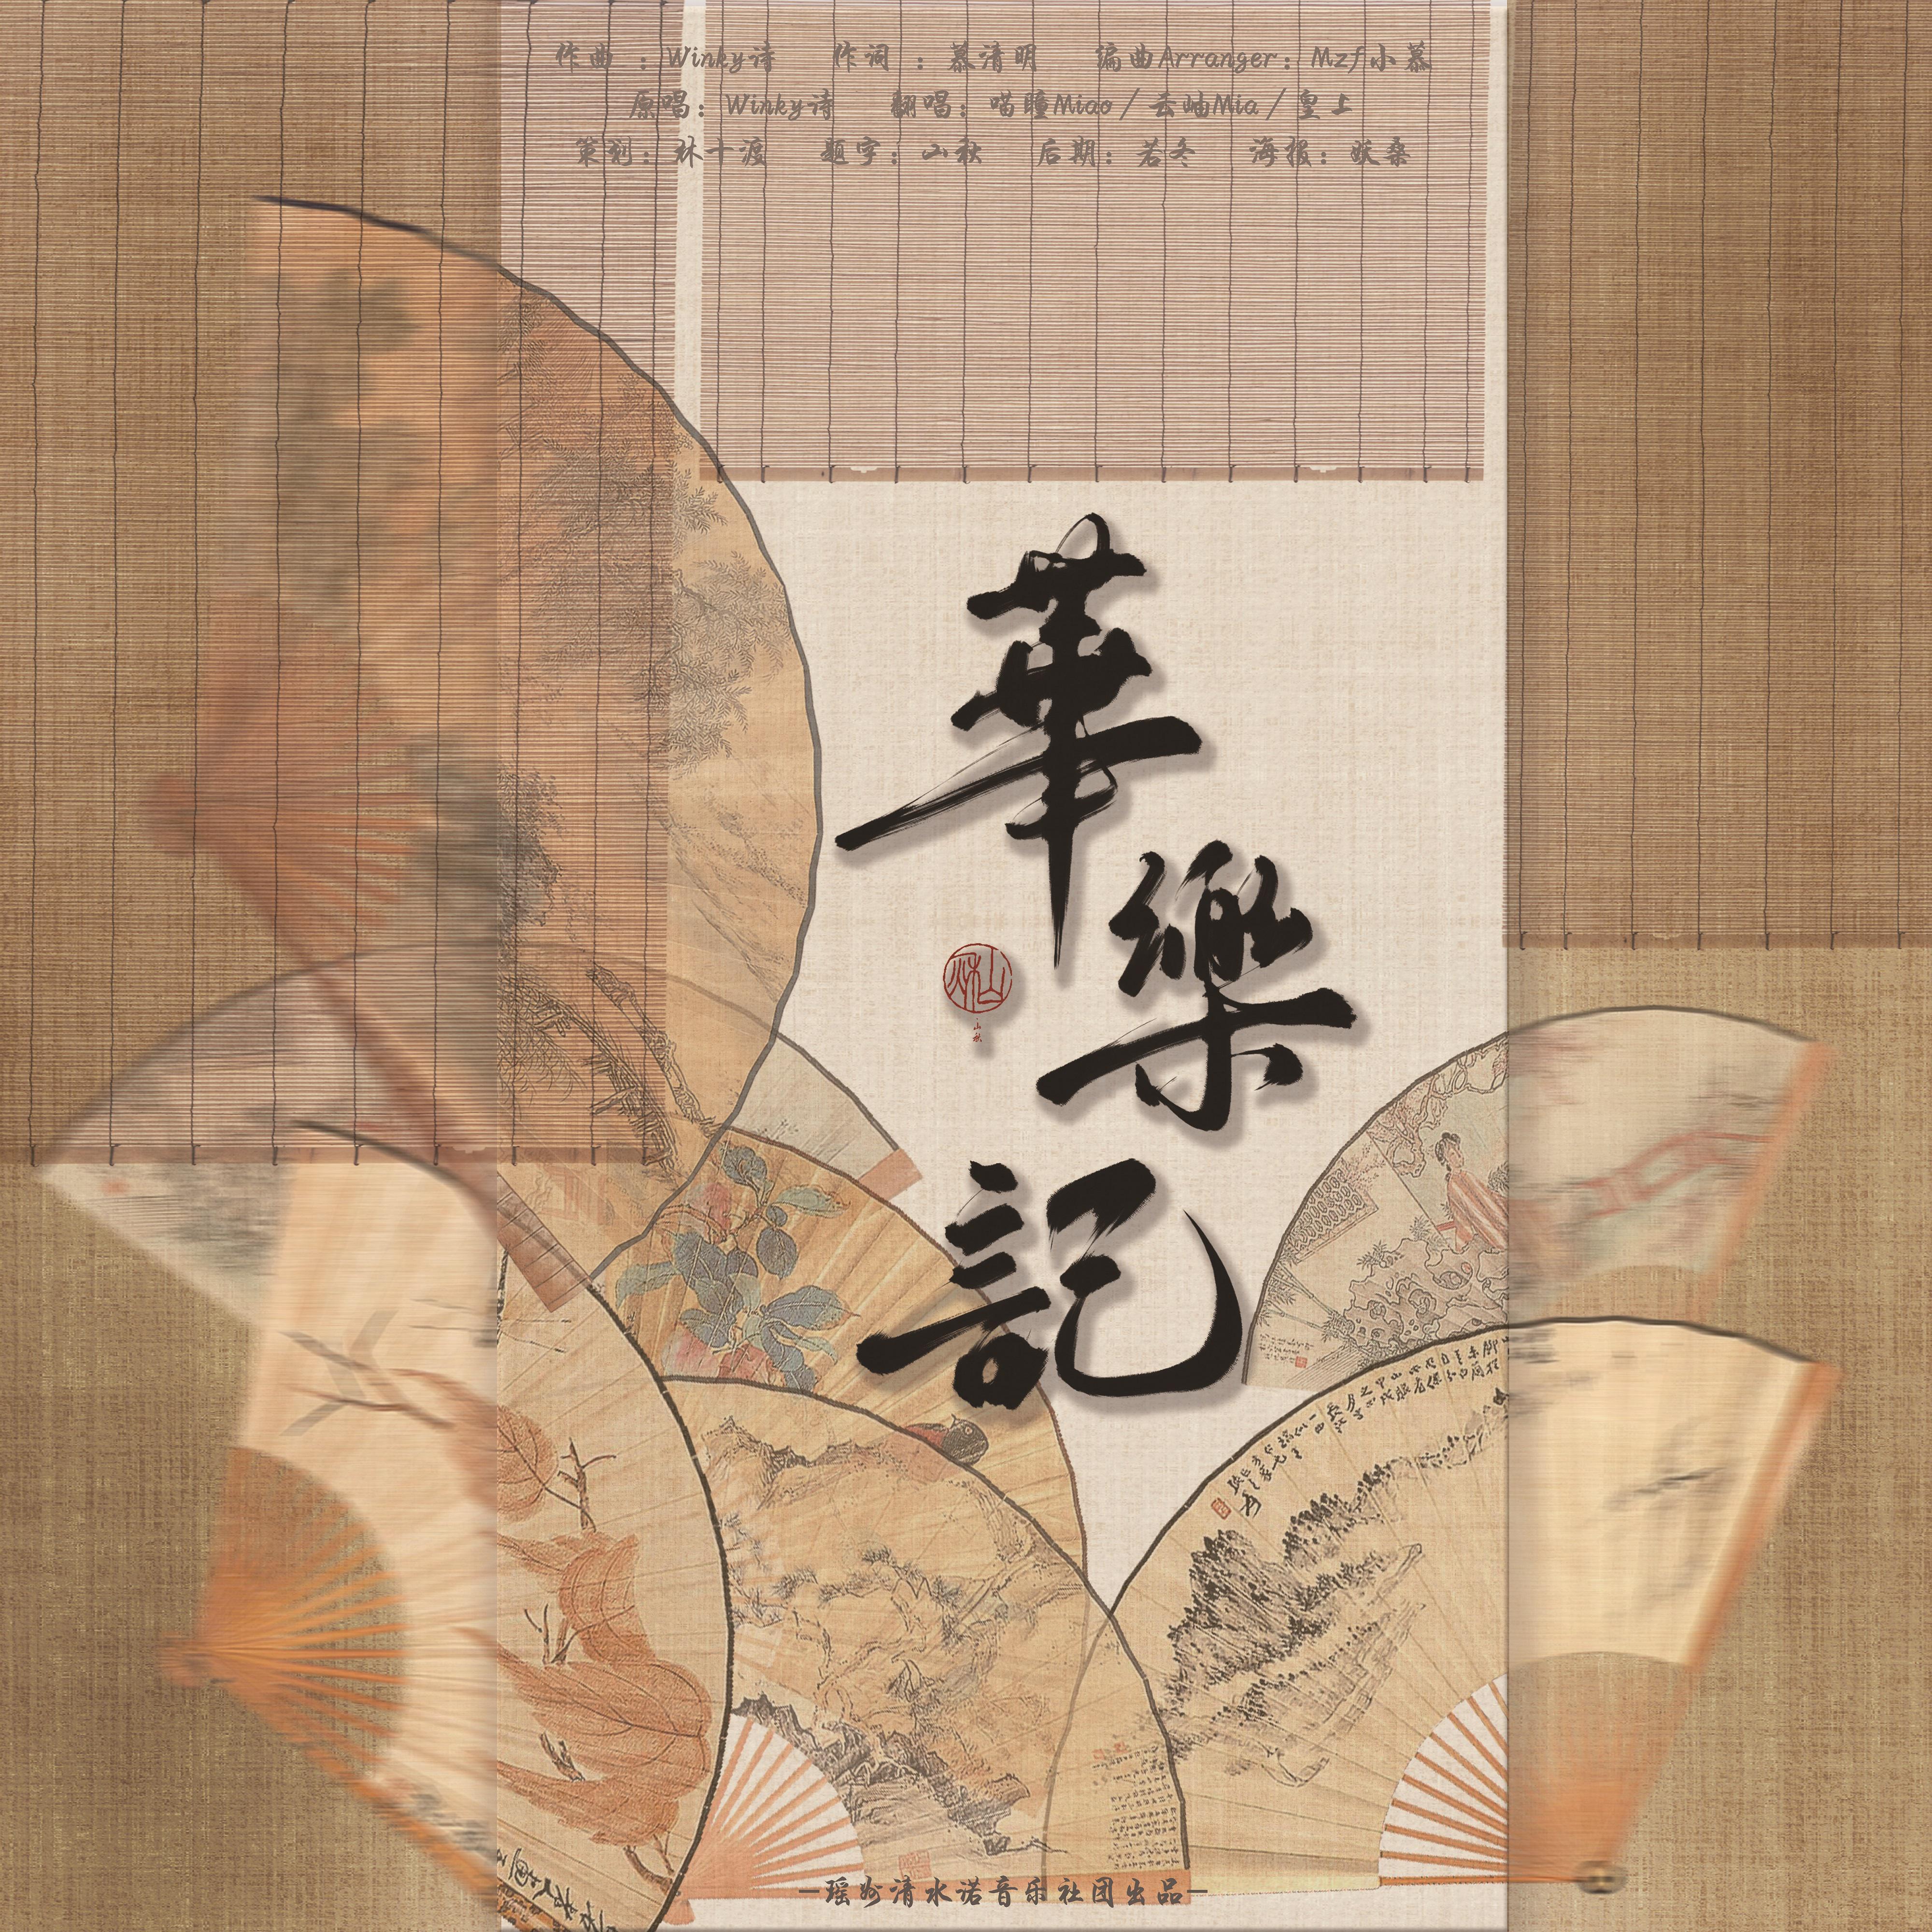 作曲 ：Winky诗 作词 ：慕清明 编曲Arranger：Mzf小慕
原唱：Winky诗 翻唱：喵瞳Miao / 云岫Mia / 皇上
策划：林十渡 题字：山秋 后期：若冬 海报：昳桑
華
樂
記
山秋
山秋
—瑶姁清水诺音乐社团出品—